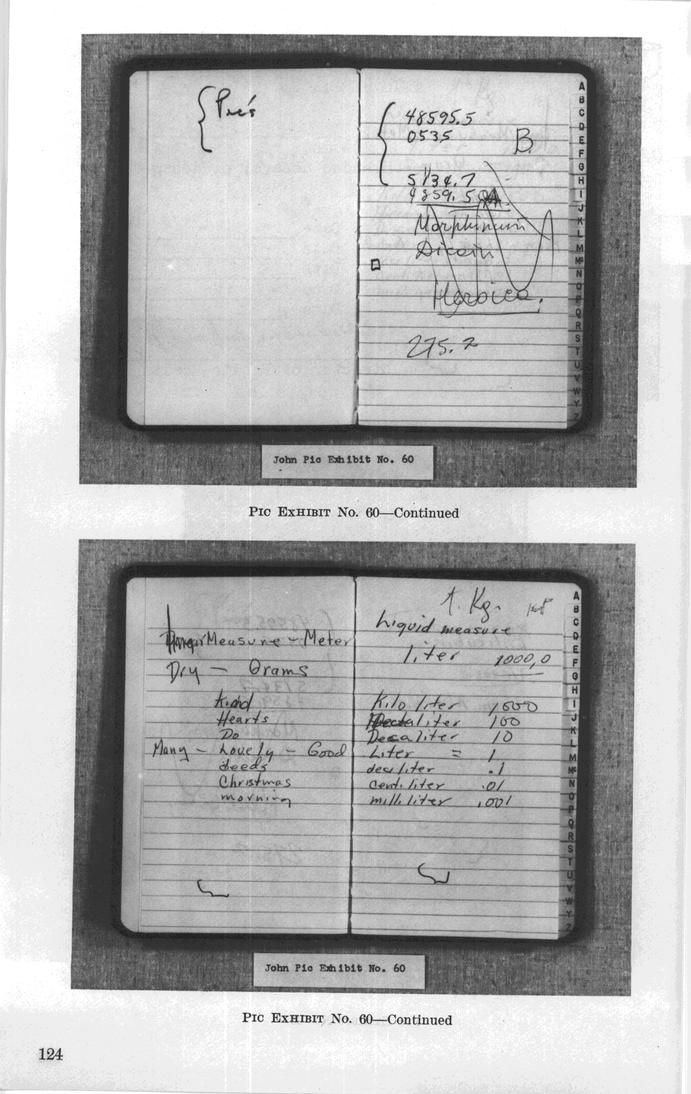 { Pic's
48595.5
0535
B.
5134.7
4859.5
Morphinum
Dicain
Heroica.
275.2
A
B
C
D
E
F
G
H
I
J
K
L
M
Mc
N
O
P
Q
R
S
T
U
V
W
Y
Z
John Pic Exhibit No. 60
PIC EXHIBIT No. 60—Continued
Measure - Meter
Dry - Grams
Kind
Hearts
Do
Many - Lovely - Good
deeds
Christmas
morning
1. Kg.
Liquid measure
liter 1000,0
Kilo liter 1000
Hectaliter 100
Decaliter 10
Liter = 1
deciliter .1
centiliter .01
milliliter .001
A
B
C
D
E
F
G
H
I
J
K
L
M
Mc
N
O
P
Q
R
S
T
U
V
W
Y
Z
John Pic Exhibit No. 60
PIC EXHIBIT No. 60—Continued
124